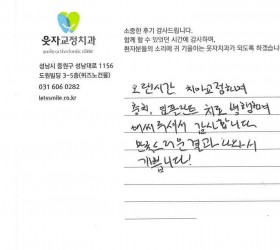 웃자교정치과
smile orthodontic clinic
성남시 중원구 성남대로 1156
도원빌딩 3-5층(위즈노건물)
031 606 0282
letssmile.co.kr
소중한 후기 감사드립니다.
함께 할 수 있었던 시간에 감사하며,
환자분들의 소리에 귀 기울이는 웃자치과가 되도록 하겠습니
오랜시간 치아교정하며
충치, 임플란트 치료 병행하며
애써주셔서 감사합니다.
만족스러운 결과 나와서
기쁩니다!